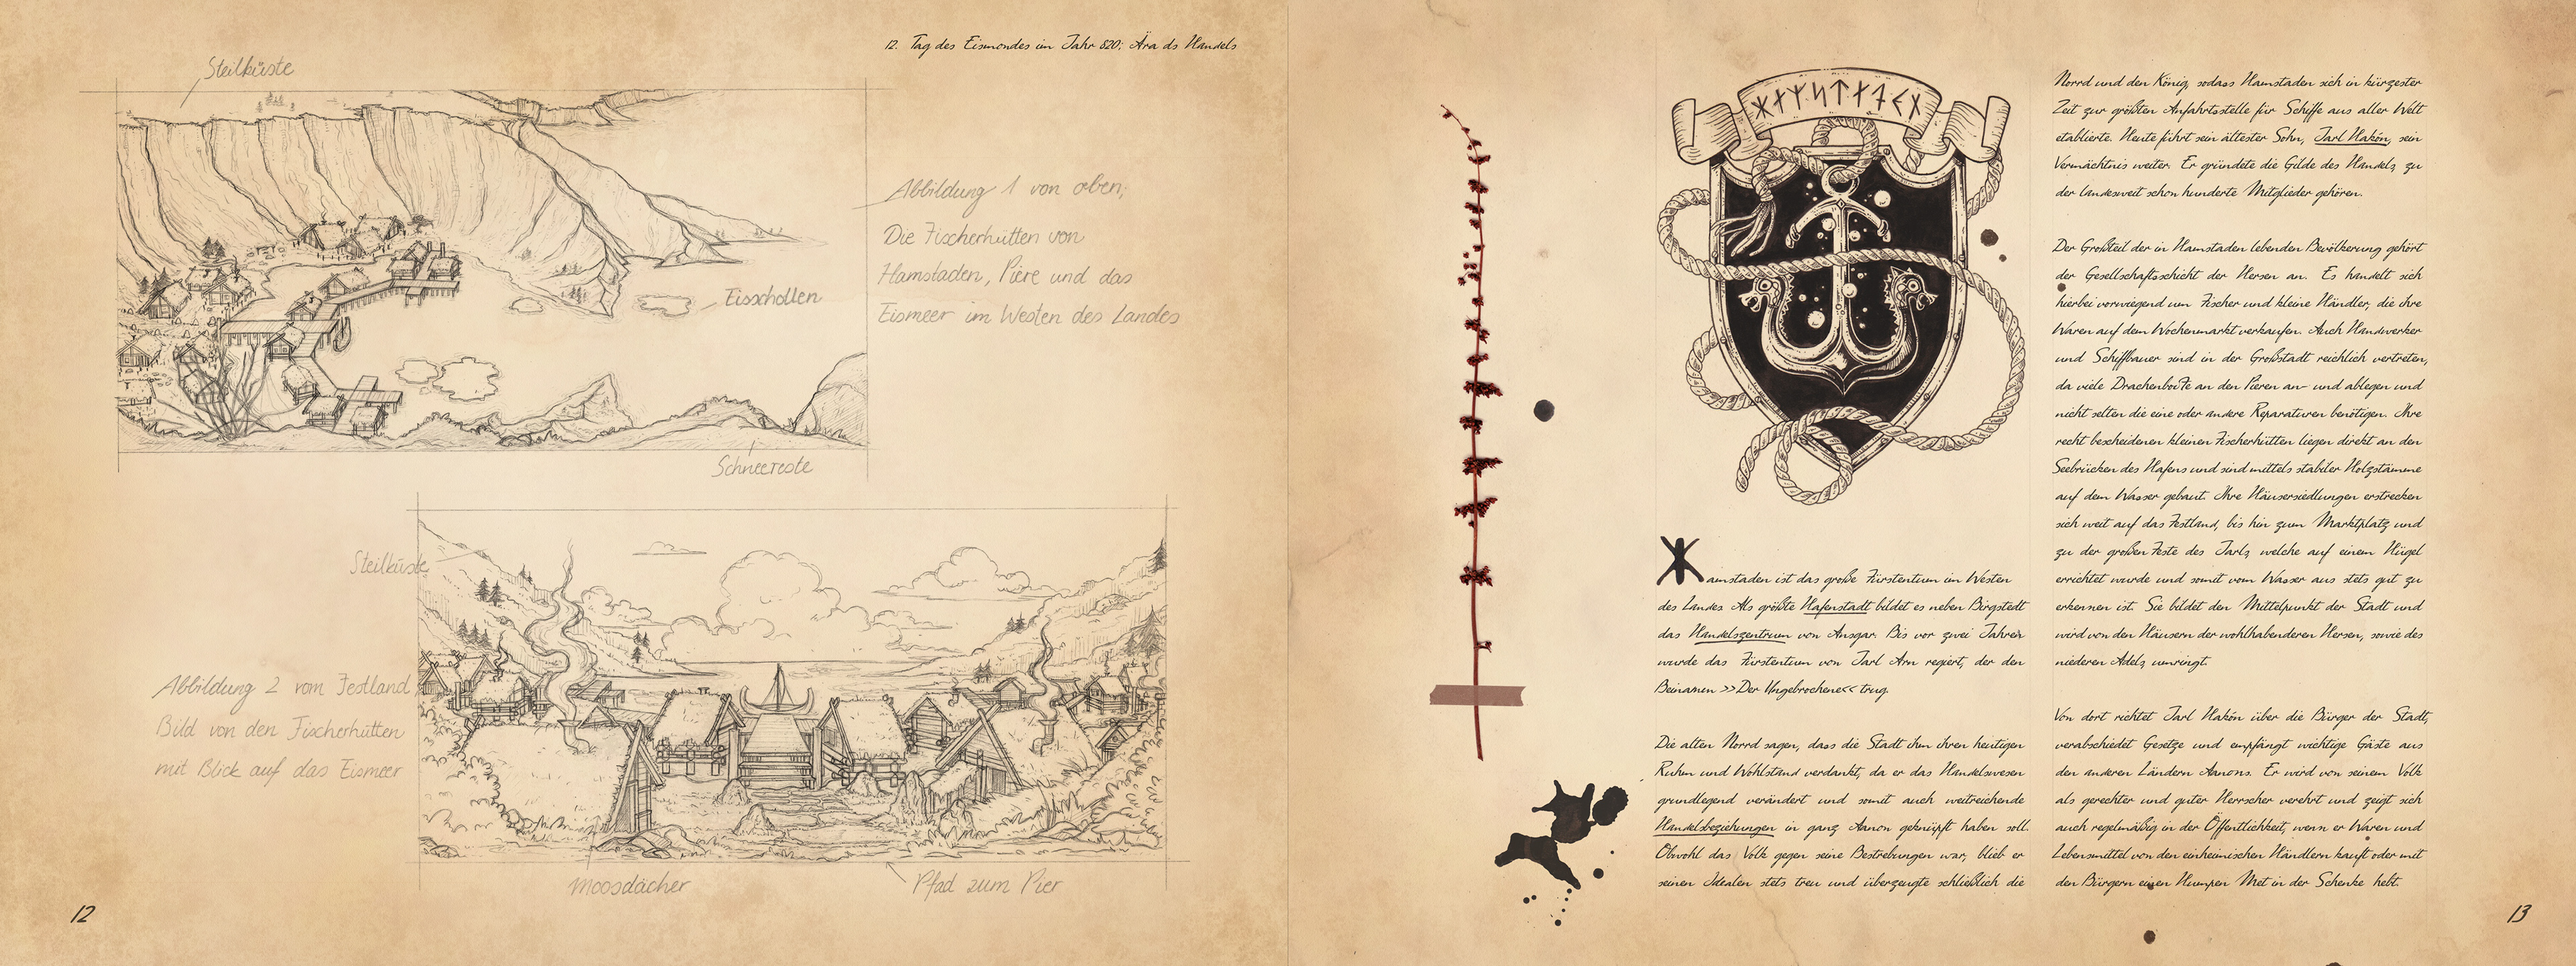 12. Tag des Eismondes im Jahr 820; Ära ds Handels
Steilküste
Abbildung 1 von oben;
Die Fischerhütten von
Hamstaden, Piere und das
Eismeer im Westen des Landes
Eisschollen
Schneereste
Steilküste
Abbildung 2 vom Festland
Bild von den Fischerhütten
mit Blick auf das Eismeer
Moosdächer
Pfad zum Pier
12
ᚼᛅᛉᛋᛏᛅ
amstaden ist das große Fürstentum im Westen
des Landes. Als größte Hafenstadt bildet es neben Birgstedt
das Handelszentrum von Ansgar. Bis vor zwei Jahren
wurde das Fürstentum von Jarl Arn regiert, der den
Beinamen >>Der Ungebrochene<< trug.
Die alten Norrd sagen, dass die Stadt ihm ihren heutigen
Ruhm und Wohlstand verdankt, da er das Handelswesen
grundlegend verändert und somit auch weitreichende
Handelsbeziehungen in ganz Aanon geknüpft haben soll.
Obwohl das Volk gegen seine Bestrebungen war, blieb er
seinen Idealen stets treu und überzeugte schließlich die
Norrd und den König, sodass Hamstaden sich in kürzester
Zeit zur größten Anfahrtsstelle für Schiffe aus aller Welt
etablierte. Heute führt sein ältester Sohn, Jarl Hakón, sein
Vermächtnis weiter. Er gründete die Gilde des Handels, zu
der landesweit schon hunderte Mitglieder gehören.
Der Großteil der in Hamstaden lebenden Bevölkerung gehört
der Gesellschaftsschicht der Hersen an. Es handelt sich
hierbei vorwiegend um Fischer und kleine Händler, die ihre
Waren auf dem Wochenmarkt verkaufen. Auch Handwerker
und Schiffbauer sind in der Großstadt reichlich vertreten,
da viele Drachenboote an den Pieren an- und ablegen und
nicht selten die eine oder andere Reparaturen benötigen. Ihre
recht bescheidenen kleinen Fischerhütten liegen direkt an den
Seebrücken des Hafens und sind mittels stabiler Holzstämme
auf dem Wasser gebaut. Ihre Häusersiedlungen erstrecken
sich weit auf das Festland, bis hin zum Marktplatz und
zu der großen Feste des Jarls, welche auf einem Hügel
errichtet wurde und somit vom Wasser aus stets gut zu
erkennen ist. Sie bildet den Mittelpunkt der Stadt und
wird von den Häusern der wohlhabenderen Hersen, sowie des
niederen Adels, umringt.
Von dort richtet Jarl Hakón über die Bürger der Stadt,
verabschiedet Gesetze und empfängt wichtige Gäste aus
den anderen Ländern Aanons. Er wird von seinem Volk
als gerechter und guter Herrscher verehrt und zeigt sich
auch regelmäßig in der Öffentlichkeit, wenn er Waren und
Lebensmittel von den einheimischen Händlern kauft oder mit
den Bürgern einen Humpen Met in der Schenke hebt.
13